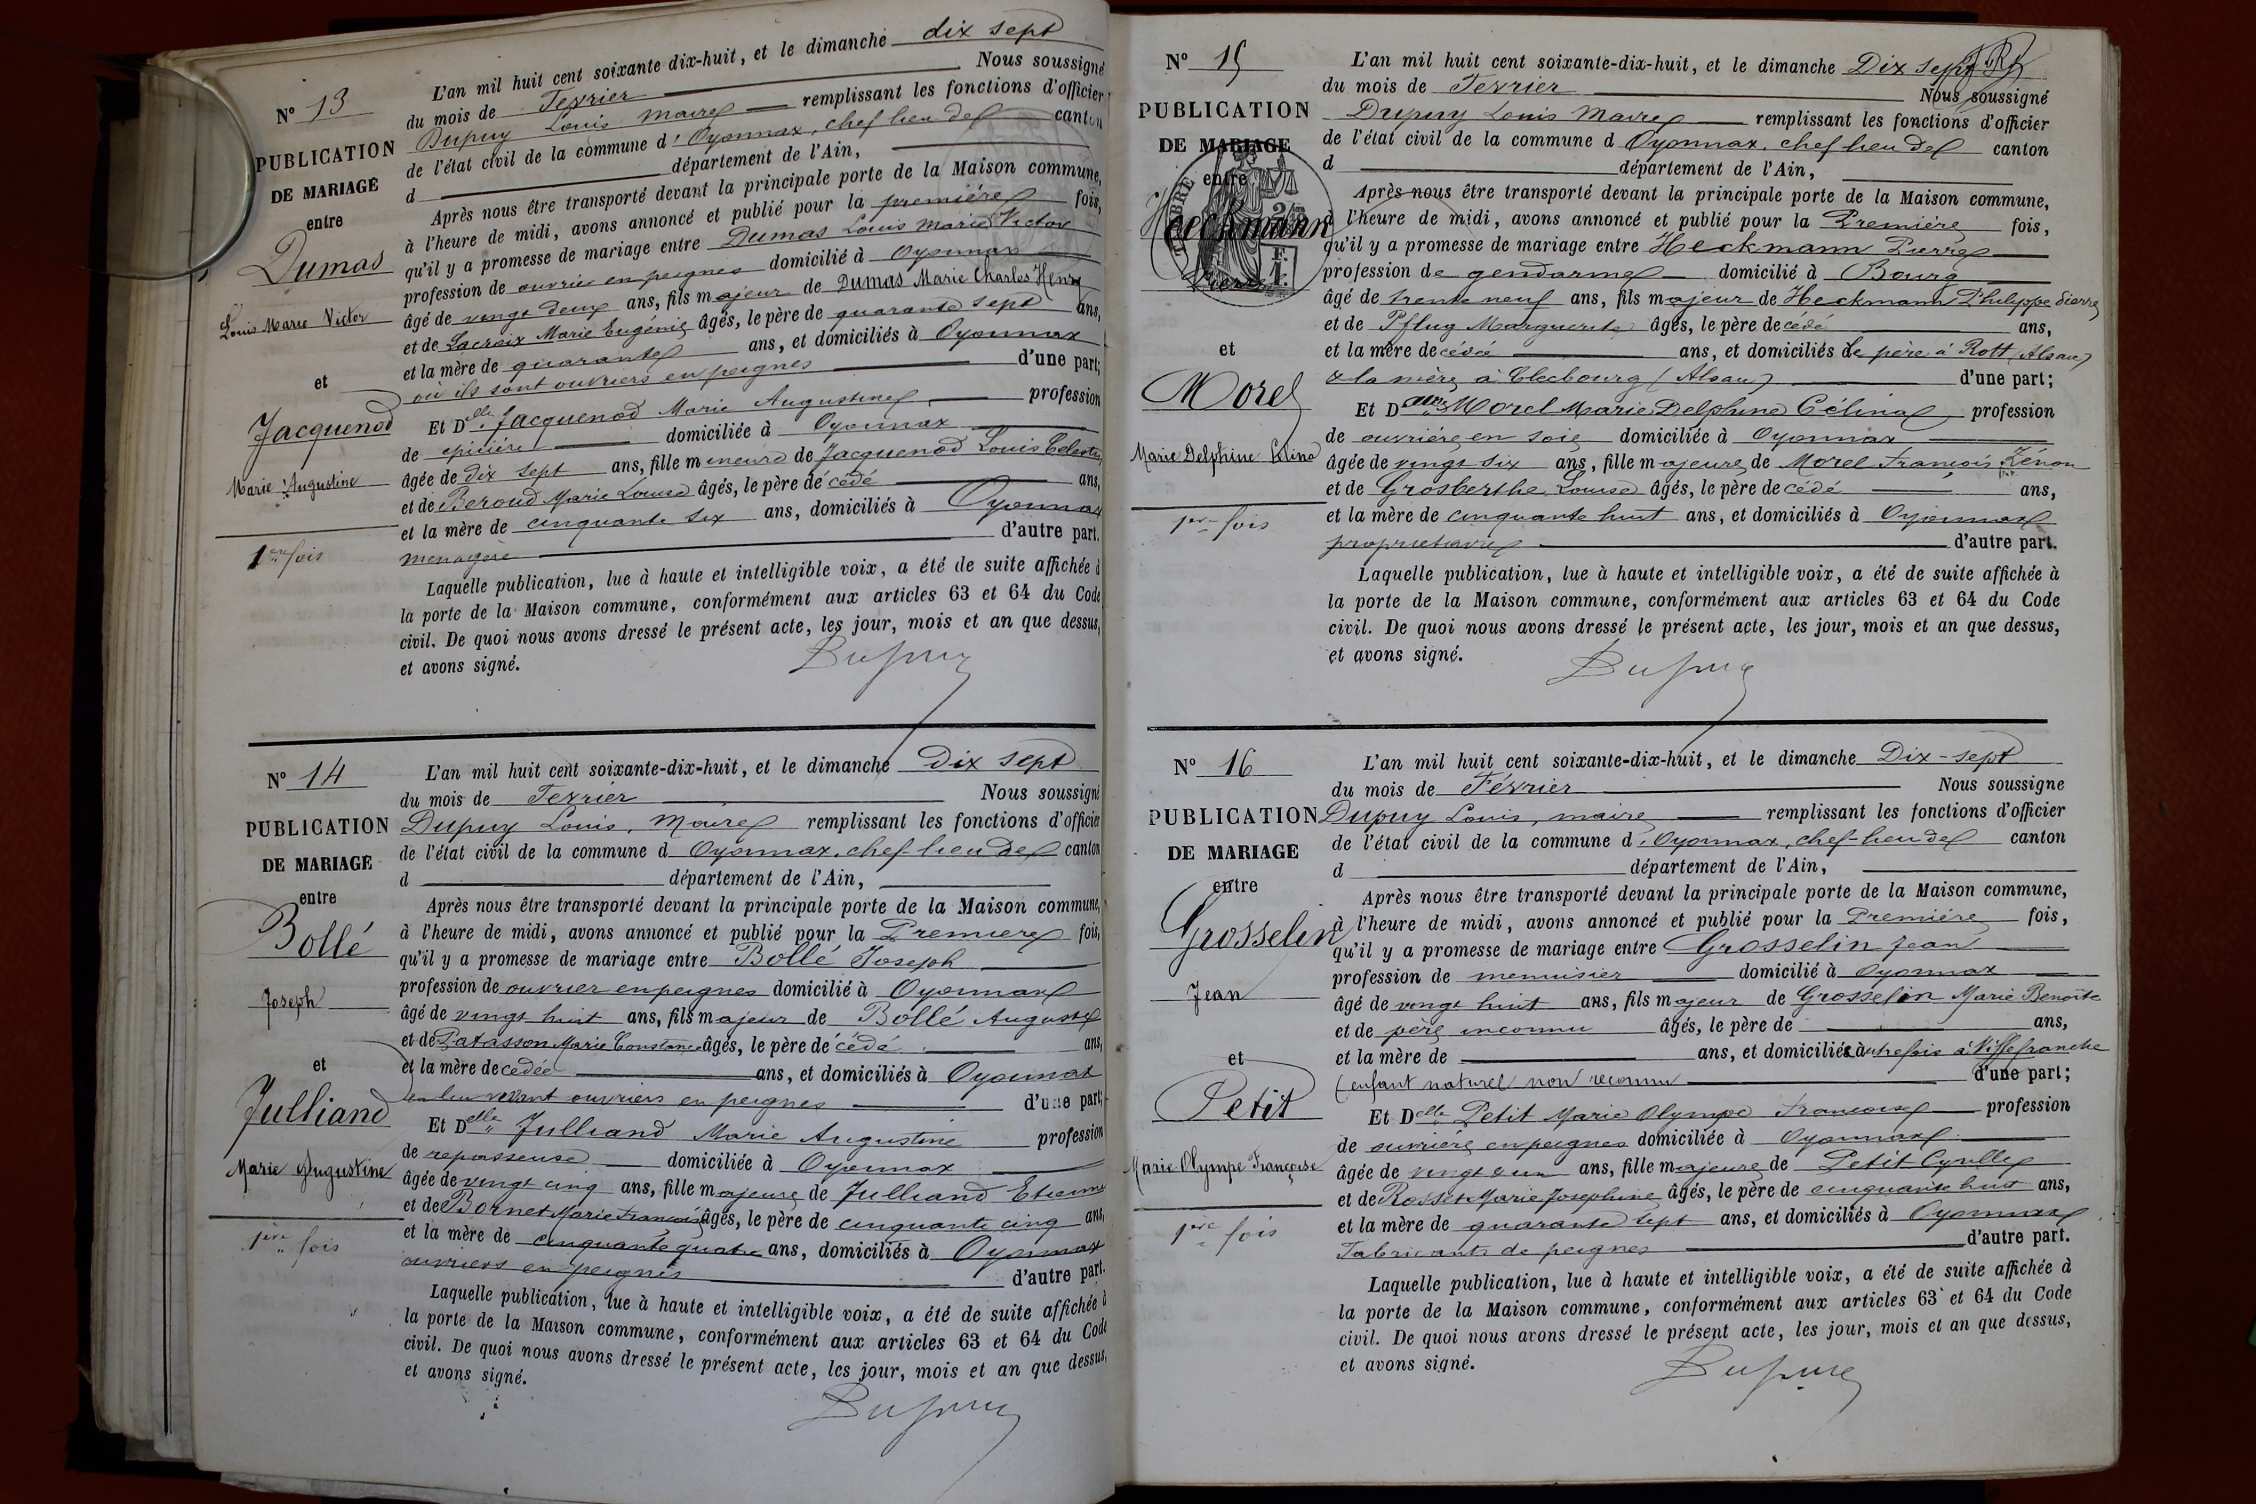 N° 13
PUBLICATION
DE MARIAGE
entre
Dumas
Louis Marie Victor
et
Jacquenod
Marie Augustine
1ère fois
L'an mil huit cent soixante-dix-huit, et le dimanche dix sept
du mois de Fevrier Nous soussigné
Dupuy Louis Maire remplissant les fonctions d'officier
de l'état civil de la commune d' Oyonnax, chef lieu de canton
d département de l'Ain,
Après nous être transporté devant la principale porte de la Maison commune,
à l'heure de midi, avons annoncé et publié pour la première fois,
qu'il y a promesse de mariage entre Dumas Louis Marie Victor
profession de ouvrier en peignes domicilié à Oyonnax
âgé de vingt deux ans, fils majeur de Dumas Marie Charles Henry
et de Lacroix Marie Eugénie âgés, le père de quarante sept ans,
et la mère de quarante ans, et domiciliés à Oyonnax
où ils sont ouvriers en peignes d'une part;
Et Delle Jacquenod Marie Augustine profession
de epicière domiciliée à Oyonnax
âgée de dix sept ans, fille mineure de Jacquenod Louis Celestin
et de Beroud Marie Louise âgés, le père décédé ans,
et la mère de cinquante six ans, domiciliés à Oyonnax
menagère d'autre part.
Laquelle publication, lue à haute et intelligible voix, a été de suite affichée à
la porte de la Maison commune, conformément aux articles 63 et 64 du Code
civil. De quoi nous avons dressé le présent acte, les jour, mois et an que dessus,
et avons signé.
Dupuy
N° 14
PUBLICATION
DE MARIAGE
entre
Bollé
Joseph
et
Julliand
Marie Augustine
1ère fois
L'an mil huit cent soixante-dix-huit, et le dimanche Dix sept
du mois de Fevrier Nous soussigné
Dupuy Louis, Maire remplissant les fonctions d'officier
de l'état civil de la commune d Oyonnax, chef-lieu de canton
d département de l'Ain,
Après nous être transporté devant la principale porte de la Maison commune,
à l'heure de midi, avons annoncé et publié pour la Premiere fois,
qu'il y a promesse de mariage entre Bollé Joseph
profession de ouvrier en peignes domicilié à Oyonnax
âgé de vingt huit ans, fils majeur de Bollé Auguste
et de Patasson Marie Constance âgés, le père décédé ans,
et la mère decedée ans, et domiciliés à Oyonnax
en leur vivant ouvriers en peignes d'une part;
Et Delle Julliand Marie Augustine profession
de repasseuse domiciliée à Oyonnax
âgée de vingt cinq ans, fille majeure de Julliand Etienne
et de Bornet Marie Françoise âgés, le père de cinquante cinq ans,
et la mère de cinquante quatre ans, domiciliés à Oyonnax
ouvriers en peignes d'autre part.
Laquelle publication, lue à haute et intelligible voix, a été de suite affichée à
la porte de la Maison commune, conformément aux articles 63 et 64 du Code
civil. De quoi nous avons dressé le présent acte, les jour, mois et an que dessus,
et avons signé.
Dupuy
N° 15
PUBLICATION
DE MARIAGE
entre
Heckmann
Pierre
et
Morel
Marie Delphine Celina
1ère fois
TIMBRE
2/10
F.
1.
L'an mil huit cent soixante-dix-huit, et le dimanche Dix sept
du mois de Fevrier Nous soussigné
Dupuy Louis Maire remplissant les fonctions d'officier
de l'état civil de la commune d Oyonnax, chef lieu de canton
d département de l'Ain,
Après nous être transporté devant la principale porte de la Maison commune,
à l'heure de midi, avons annoncé et publié pour la Première fois,
qu'il y a promesse de mariage entre Heckmann Pierre
profession de gendarme domicilié à Bourg
âgé de trente neuf ans, fils majeur de Heckmann Philippe Pierre
et de Pflug Marguerite âgés, le père décédé ans,
et la mère decédée ans, et domiciliés le père à Rott (Alsace)
& la mère à Clecbourg (Alsace) d'une part;
Et Delle Morel Marie Delphine Célina profession
de ouvrière en soie domiciliée à Oyonnax
âgée de vingt six ans, fille majeure de Morel François Zénon
et de Grosberthe Louise âgés, le père décédé ans,
et la mère de cinquante huit ans, et domiciliés à Oyonnax
proprietaire d'autre part.
Laquelle publication, lue à haute et intelligible voix, a été de suite affichée à
la porte de la Maison commune, conformément aux articles 63 et 64 du Code
civil. De quoi nous avons dressé le présent acte, les jour, mois et an que dessus,
et avons signé.
Dupuy
N° 16
PUBLICATION
DE MARIAGE
entre
Grosselin
Jean
et
Petit
Marie Olympe Françoise
1ère fois
L'an mil huit cent soixante-dix-huit, et le dimanche Dix-sept
du mois de Février Nous soussigné
Dupuy Louis, maire remplissant les fonctions d'officier
de l'état civil de la commune d'Oyonnax, chef-lieu de canton
d département de l'Ain,
Après nous être transporté devant la principale porte de la Maison commune,
à l'heure de midi, avons annoncé et publié pour la Première fois,
qu'il y a promesse de mariage entre Grosselin Jean
profession de menuisier domicilié à Oyonnax
âgé de vingt huit ans, fils majeur de Grosselin Marie Benoite
et de père inconnu âgés, le père de ans,
et la mère de ans, et domiciliés autrefois à Villefranche
(enfant naturel non reconnu d'une part;
Et Delle Petit Marie Olympe Françoise profession
de ouvrière en peignes domiciliée à Oyonnax
âgée de vingt & un ans, fille majeure de Petit Cyrille
et de Rosset Marie Josephine âgés, le père de cinquante huit ans,
et la mère de quarante sept ans, et domiciliés à Oyonnax
Fabricants de peignes d'autre part.
Laquelle publication, lue à haute et intelligible voix, a été de suite affichée à
la porte de la Maison commune, conformément aux articles 63 et 64 du Code
civil. De quoi nous avons dressé le présent acte, les jour, mois et an que dessus,
et avons signé.
Dupuy